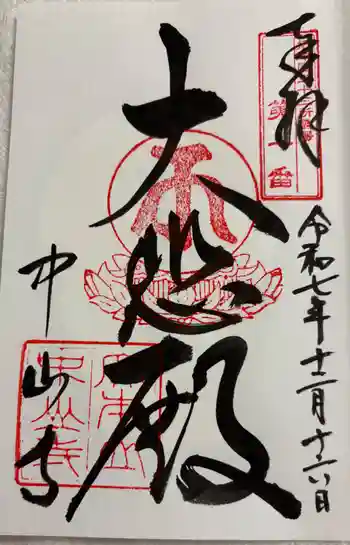 奉拝
第一番
令和七年十二月十六日
大悲殿
中山寺